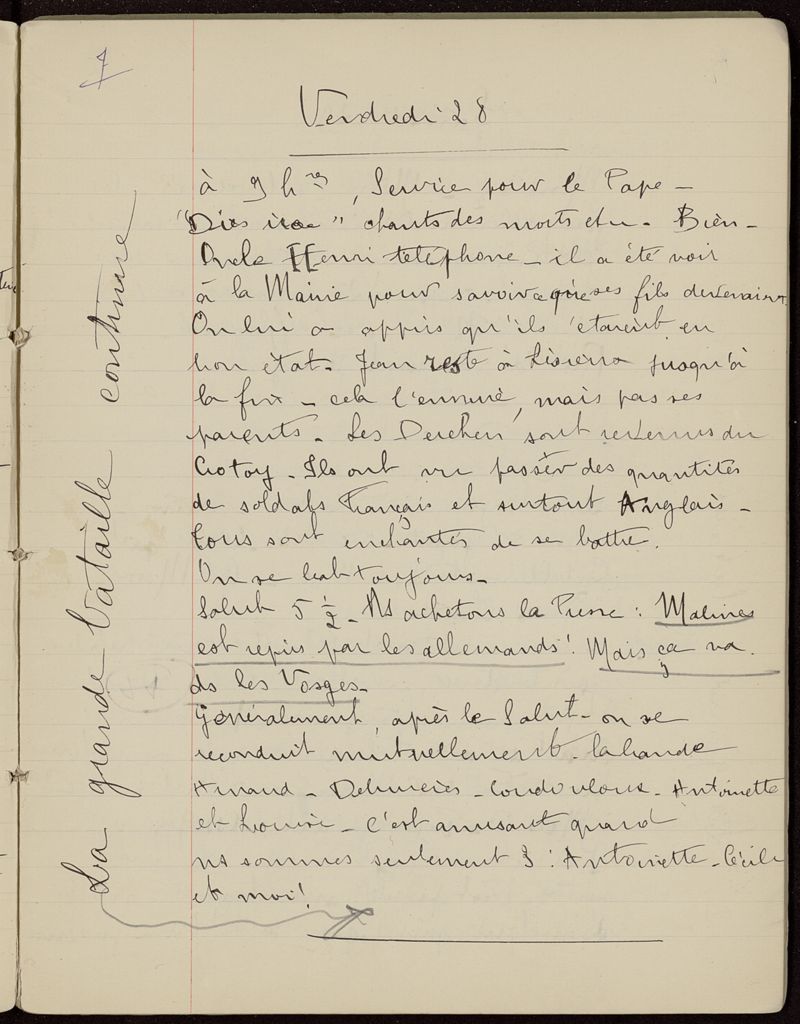 7
Vendredi 28
à 9 hres, Service pour le Pape -
"Dies irae" chants des morts etc. - Bien -
Oncle Henri téléphone - il a été voir
à la Mairie pour savoir ce que ses fils devenaient.
On lui a appris qu'ils étaient en
bon état. Jean reste à jusqu'à
la fin - cela l'ennuie, mais pas ses
parents. Les sont revenus du
Crotoy. Ils ont vu passer des quantités
de soldats Français et surtout Anglais -
tous sont enchantés de se battre.
On se bat toujours -
Salut 5 ½ - Ns achetons la Presse : Malines
est repris par les allemands ! Mais ça va
ds les Vosges.
Généralement, après le Salut - on se
reconduit mutuellement - la bande
Arnaud - - - Antoinette
et Louise - C'est amusant quand
ns sommes seulement 3 : Antoinette - Cécile
et moi !
La grande bataille continue